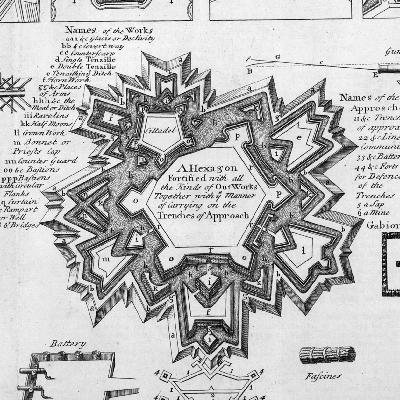 Names of the Works
aaa &c Glacis or Declivity
bb &c Covert way
cc Counterscarp
d Single Tenaille
e Double Tenaille
g Horn Work
&c Places
of Arms
hhh &c the
Moat or Ditch
iii Ravelins
kk Half Moons
ll Crown Work
m Bonnet or
Priests Cap
nn Counter Guard
ooo &c Bastions
ppp Bastions
with Circular
Flanks
Curtain
Rampart
or Wall
Bridges
Cittadel
A Hexagon
Fortified with all
the Kinds of Out Works
Together with ye Manner
of Carrying on the
Trenches & Approach
Names of the
Approach
11 &c Trench
of approach
22 &c Line
Communi
33 &c Batter
44 &c Forts
for Defence
of the
Trenches
5 a Sap
6 a Mine
Gabion
Battery
Fascines